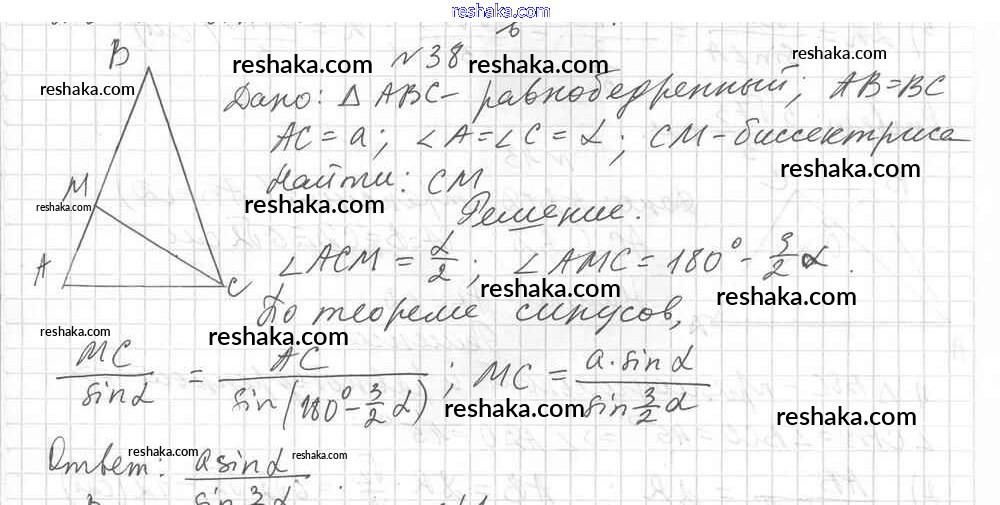 reshaka.com
№38
Дано: △ ABC - равнобедренный; AB=BC
AC = a; ∠A=∠C=α; CM-биссектриса
Найти: CM
Решение.
∠ACM = α/2; ∠AMC = 180° - 3/2 α.
По теореме синусов,
MC/sinα = AC/sin(180°-3/2 α); MC = a·sinα/sin 3/2 α
Ответ: a sinα/sin 3/2 α.
B
M
A
C
reshaka.com
reshaka.com
reshaka.com
reshaka.com
reshaka.com
reshaka.com
reshaka.com
reshaka.com
reshaka.com
reshaka.com
reshaka.com
reshaka.com
reshaka.com
reshaka.com
reshaka.com
reshaka.com